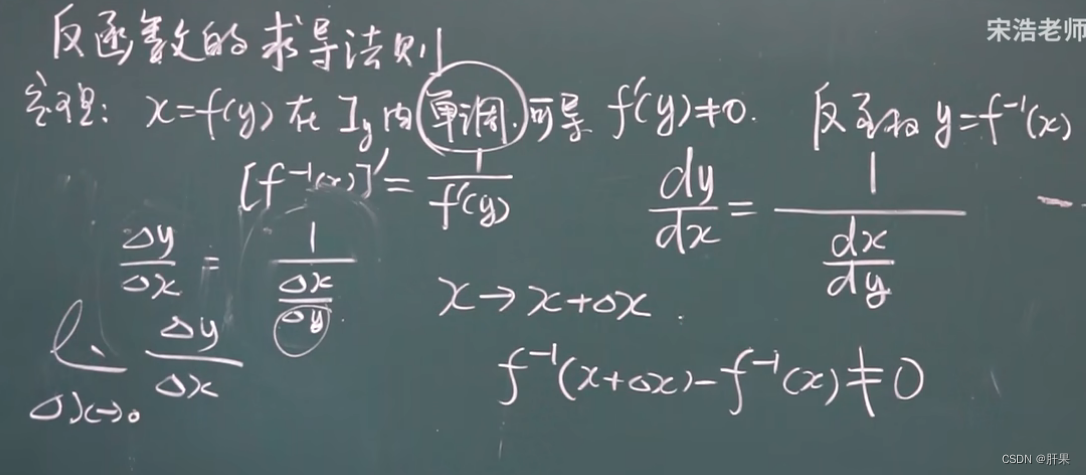 宋浩老师
反函数的求导法则
定理: x=f(y) 在 I_y 内 单调.可导 f'(y)≠0. 反函数 y=f⁻¹(x)
[f⁻¹(x)]' = 1/f'(y) dy/dx = 1/(dx/dy)
Δy/Δx = 1/(Δx/Δy) x→x+Δx.
l. Δx→0 Δy/Δx f⁻¹(x+Δx)-f⁻¹(x)≠0
CSDN @肝果